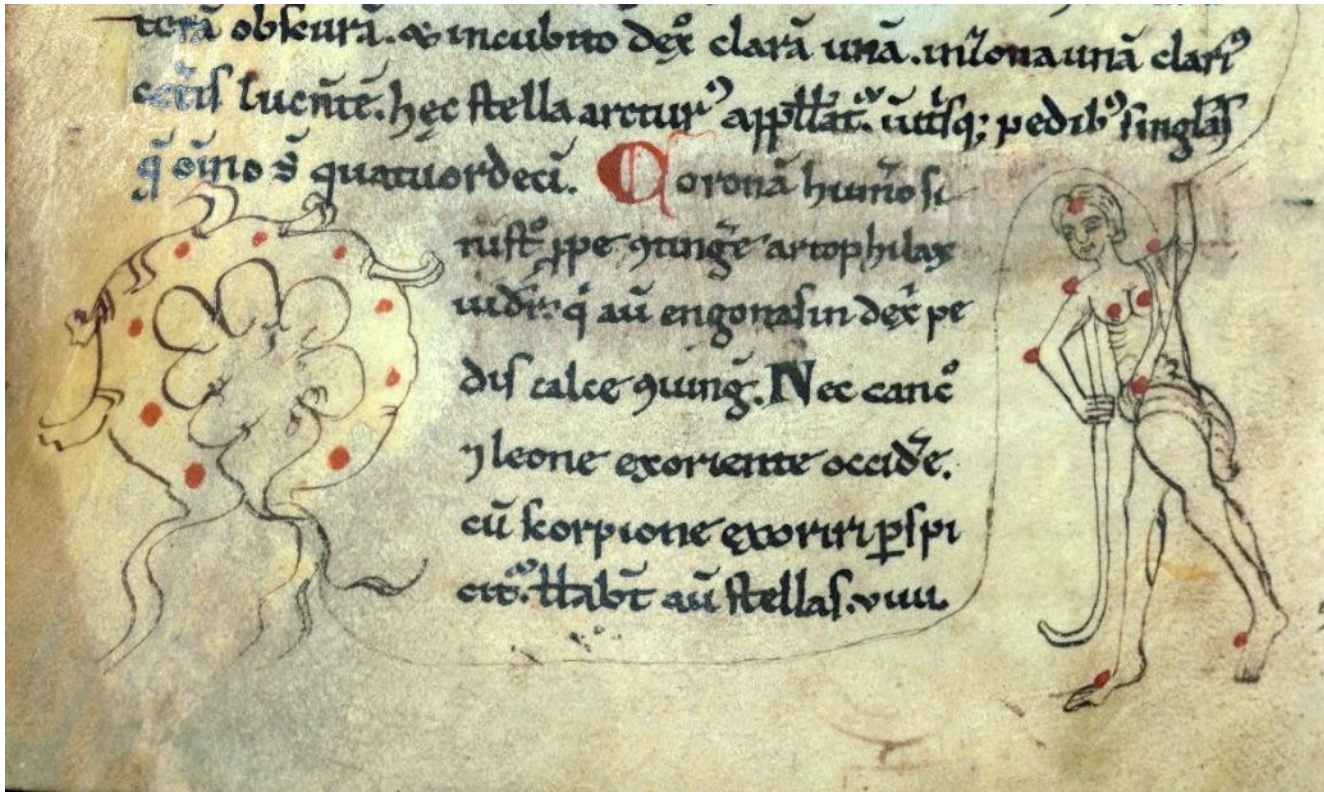 terā obscurā. & in cubito dex̄ clarā unā. in zona unā clariꝰ
cet̄is lucēnte. hęc stella arcturꝰ appellat̄. ūtisq; pedibꝰ singlas
q̄ oīno s̄ quatuordecī. Coronā humo si
nist̄o ꝓpe ꝯtinḡe artophilax
uidet̄. q̄ aū engonasin dex̄ pe
dis calce ꝯiunḡ. Nec canc̄o
⁊ leone exoriente occid̄e.
cū scorpione exoriri ꝑspi
cit̄. habet aū stellas. viiii.